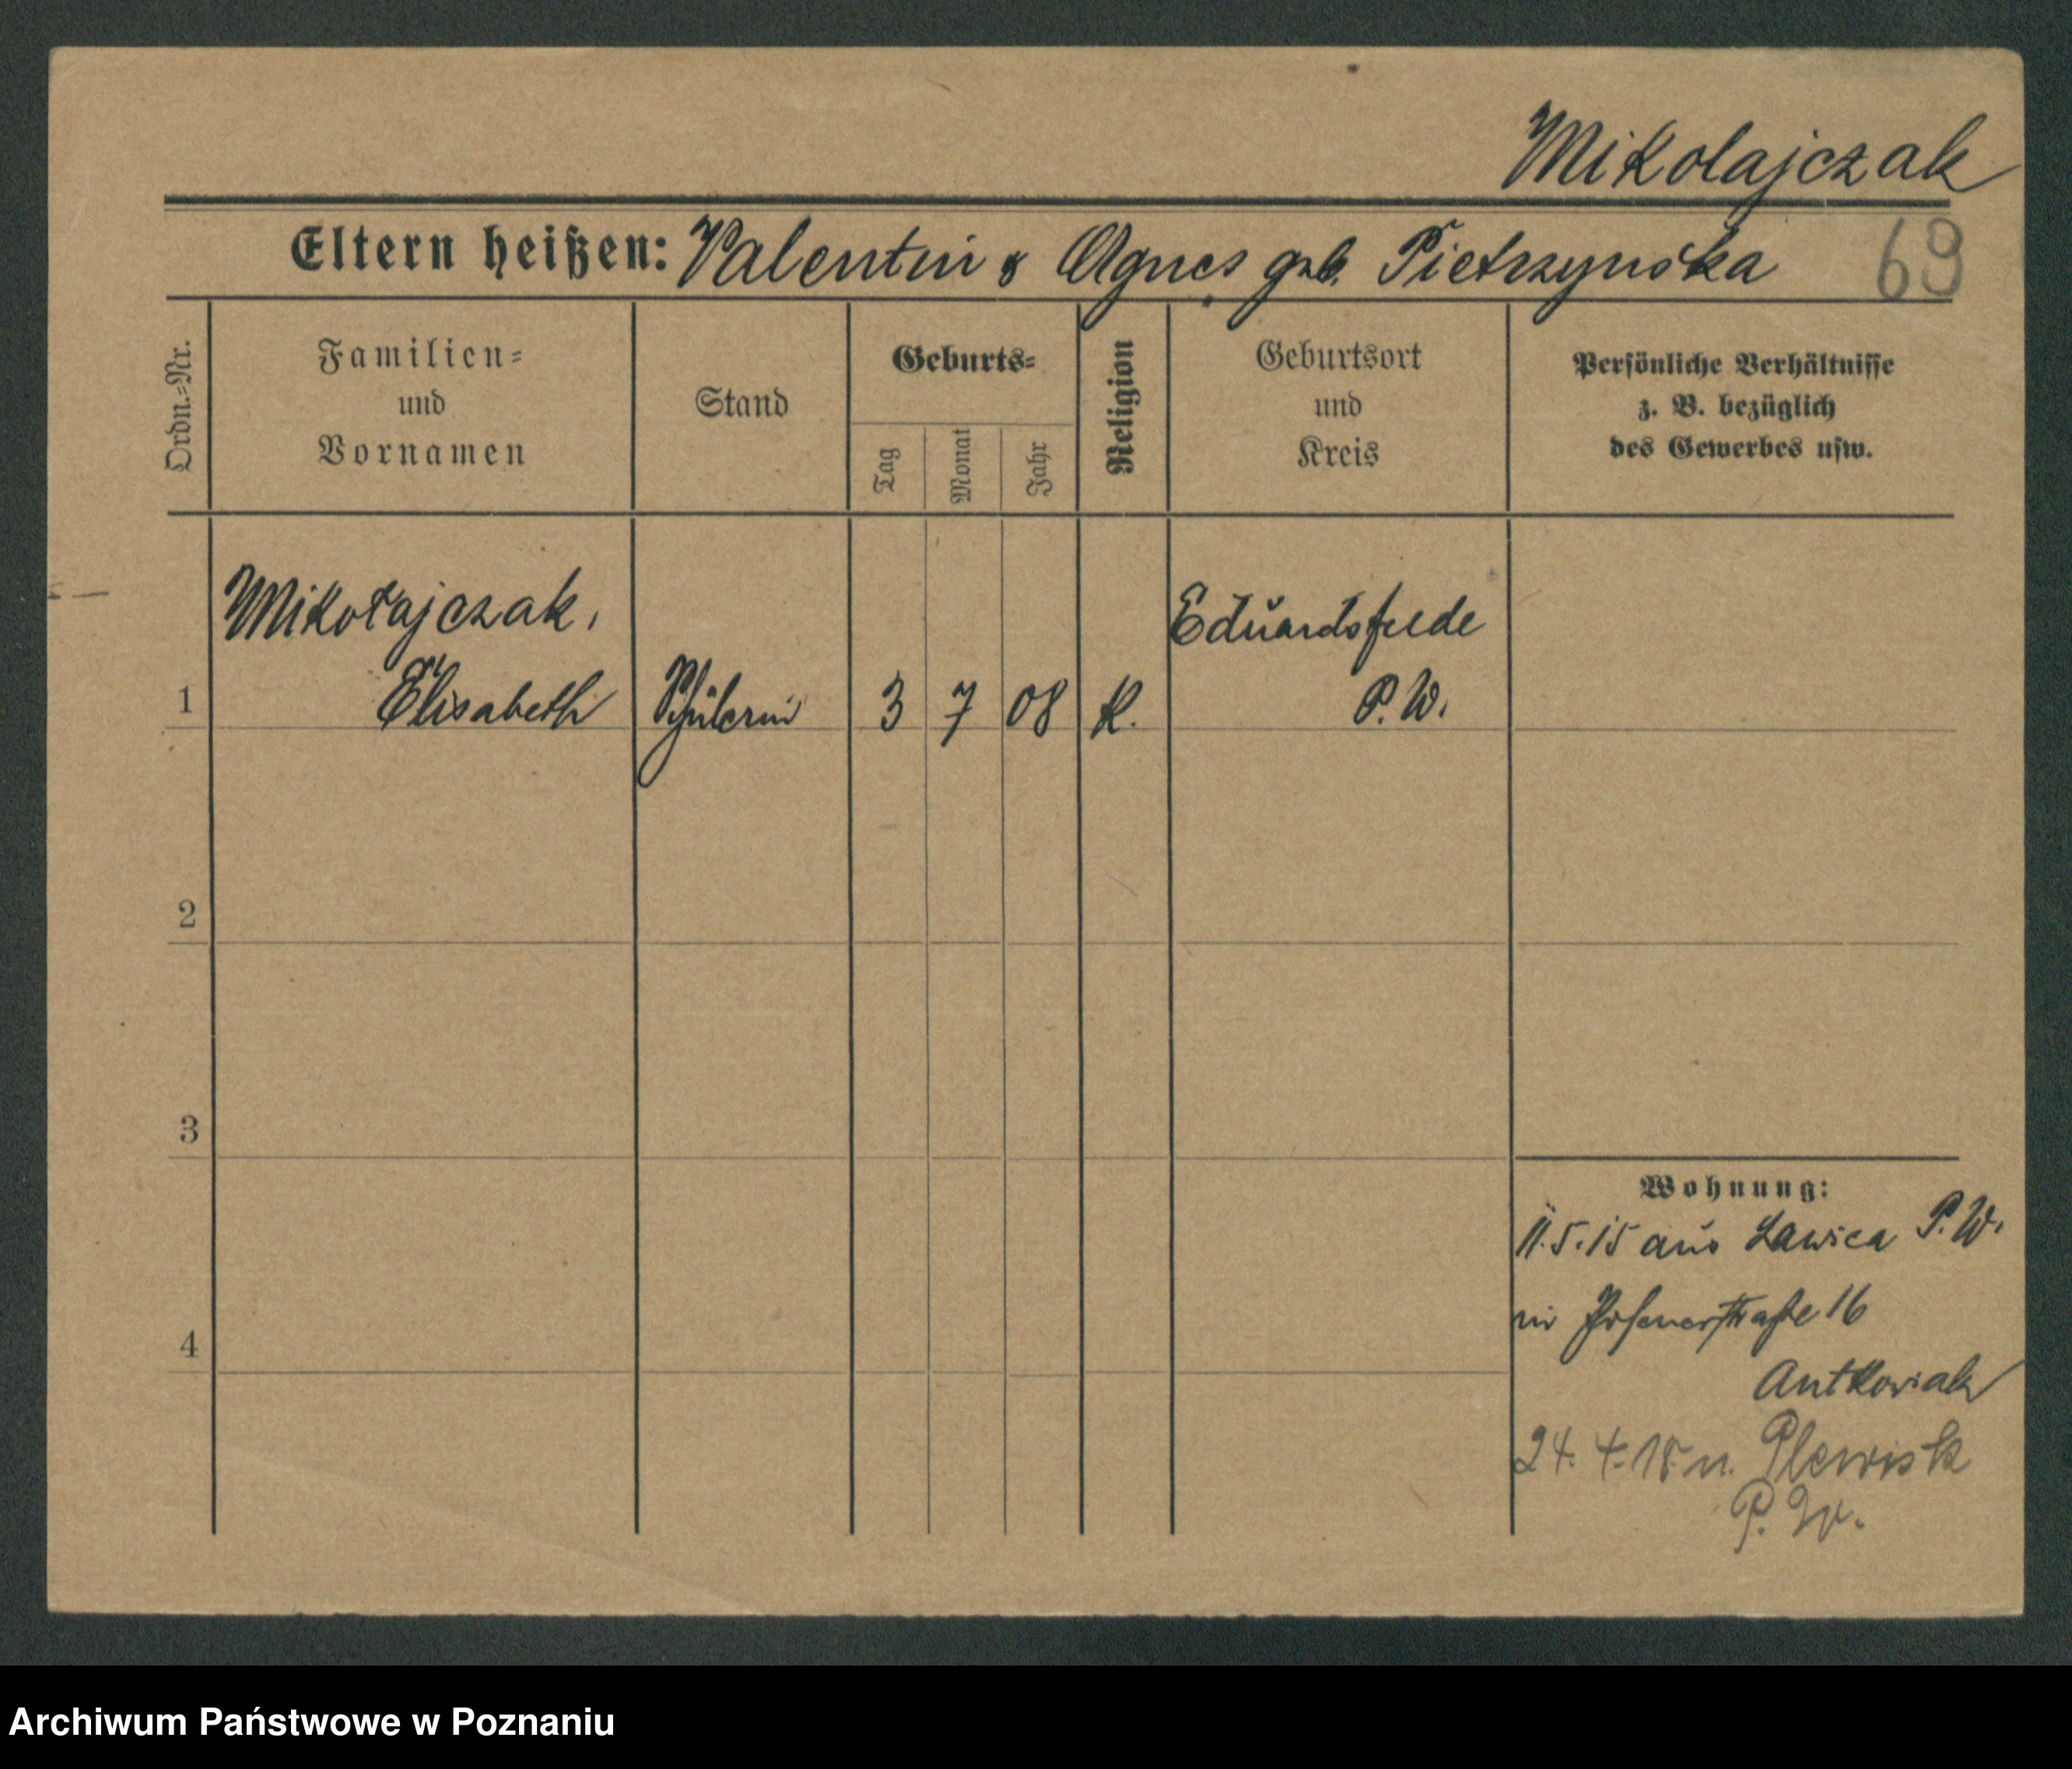 Mikolajczak
Eltern heißen: Valentin & Agnes geb. Pietrzynska
69
Ordn.-Nr.
Familien-
und
Vornamen
Stand
Geburts-
Tag
Monat
Jahr
Religion
Geburtsort
und
Kreis
Persönliche Verhältnisse
z. B. bezüglich
des Gewerbes usw.
Mikołajczak,
Eduardsfelde
1 Elisabeth Schülerin 3 7 08 K. P. W.
2
3
4
Wohnung:
11.5.15 aus Lawica P. W.
in Posenerstraße 16
Antkowiak
24. 4. 18 n. Plewisk
P. W.
Archiwum Państwowe w Poznaniu